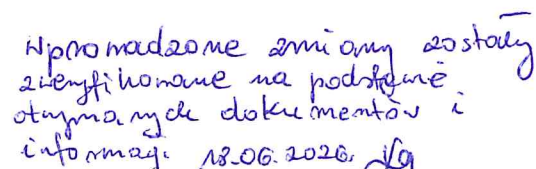 Wprowadzone zmiany zostały
zweryfikowane na podstawie
otrzymanych dokumentów i
informacji. 18.06.2026.